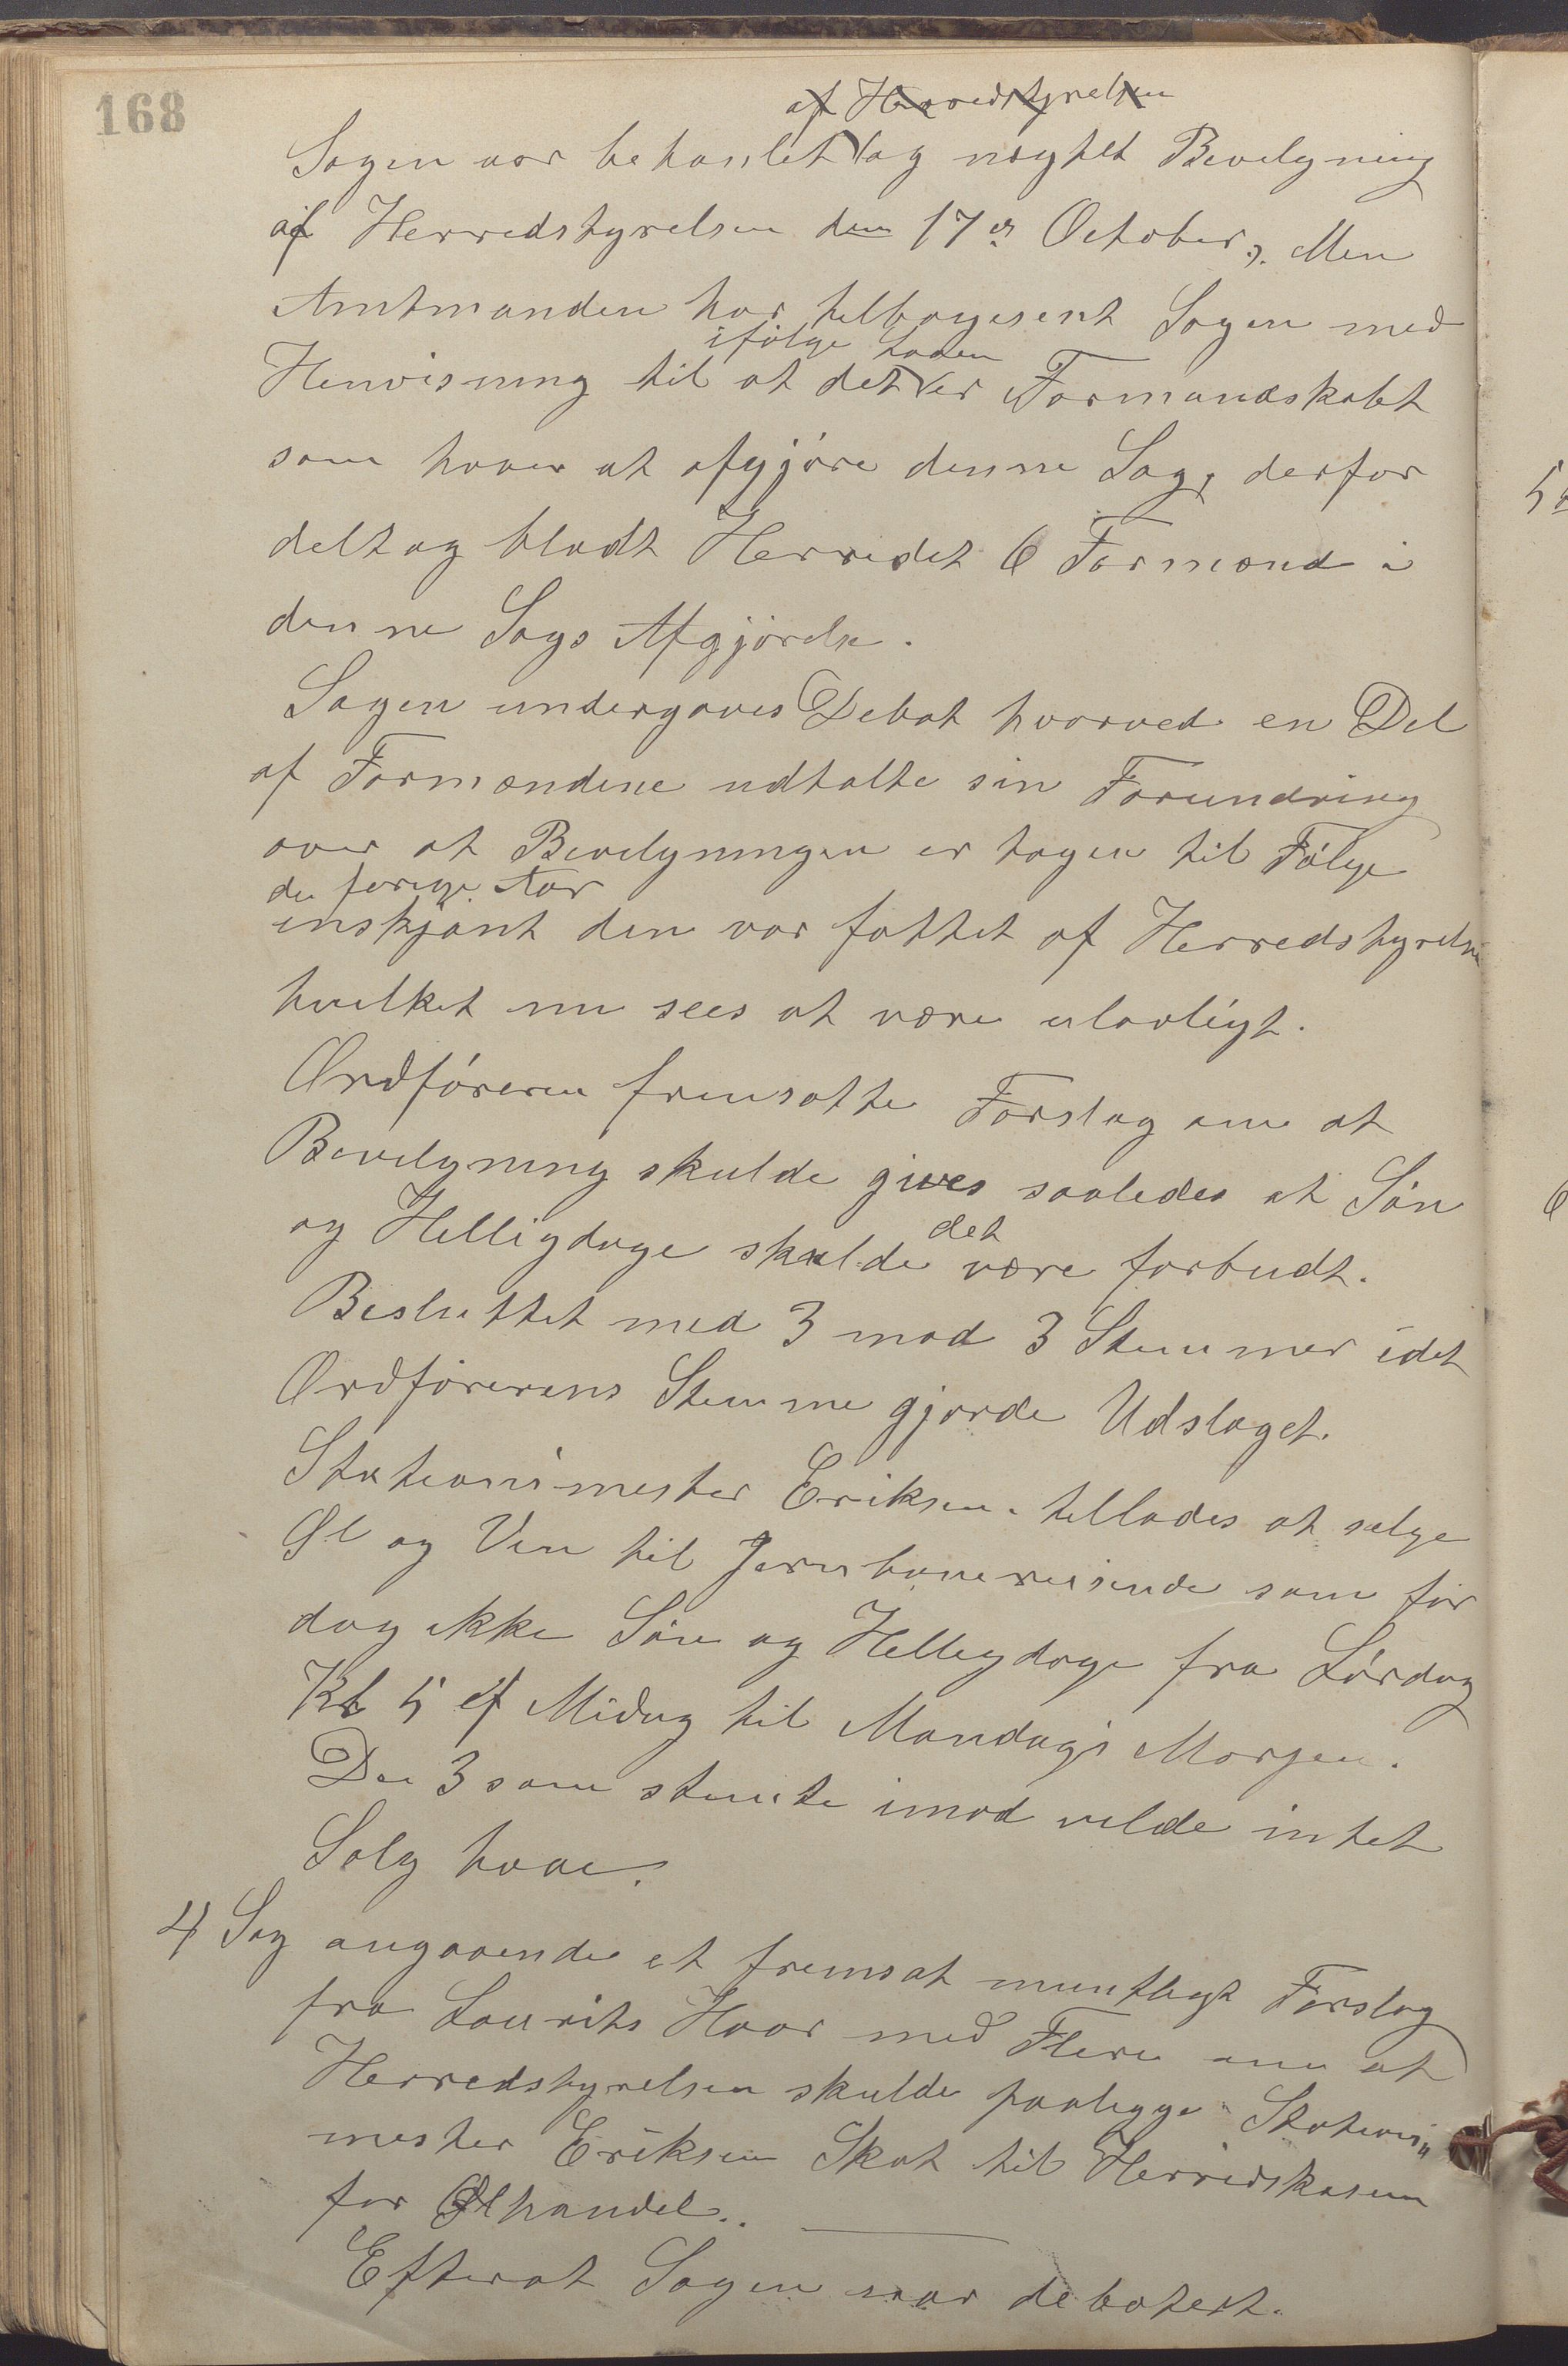 168
af Herredstyrelsen
Sagen var behanlet og nægtet Bevelgning
af Herredstyrelsen den 17de October. Men
Amtmanden har telbagesent Sagen med
ifølge Loven
Henvisning til at det er Formandskabet
som haver at afgjöre denne Sag, derfor
deltog blodt Herredet 6 Formænd i
denne Sags Afgjörelse.
Sagen undergaves Debat hvorved en Del
af Formændene udtalte sin Forundring
over at Bevelgningen er tagen til Fölge
de forige Aar
enskjönt den var fattet af Herredstyrelsen
hvilket nu sees at være ulovligt.
Ordföreren fremsatte Forslag om at
Bevelgning skulde gives saaledes at Sön
det
og Helligdage skulde være forbudt.
Besluttet med 3 mod 3 Stemmer idet
Ordförerens Stemme gjorde Udslaget.
Stationsmester Eriksen tellades at selge
Øl og Vin til Jernbanereisende som för
dog ikke Sön og Helligdage fra Lördag
Kl 5 ef Midag til Mandags Morgen.
De 3 som stemte imod vilde intet
Salg have.
4 Sag angaaende et fremsat muntligt Forslag
fra Laurits Haar med Flere om at
Herredstyrelsen skulde paalegge Stations„
mester Eriksen Skat til Herredskassen
for Ølhandel..
Efterat Sagen var debatert.